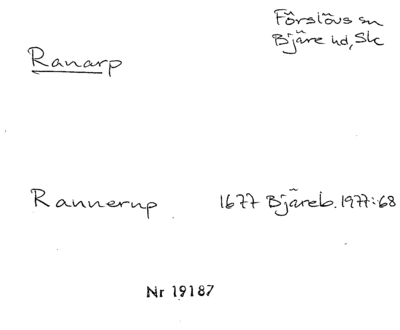 Förslövs sn
Bjäre hd, Sk
Ranarp
Rannerup 1677 Bjäreb. 1977:68
Nr 19187